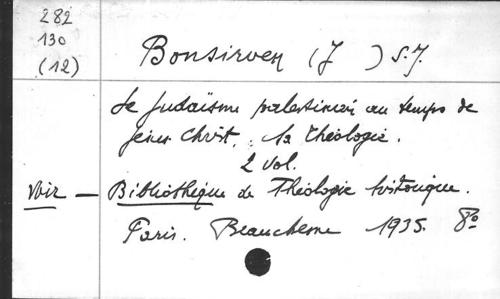 282
130
(12)
Bonsirven (J ) S.J.
Le Judaïsme palestinien au temps de
Jésus Christ. sa théologie.
2 vol.
Voir — Bibliothèque de Théologie historique.
Paris. Beauchesne 1935. 8º